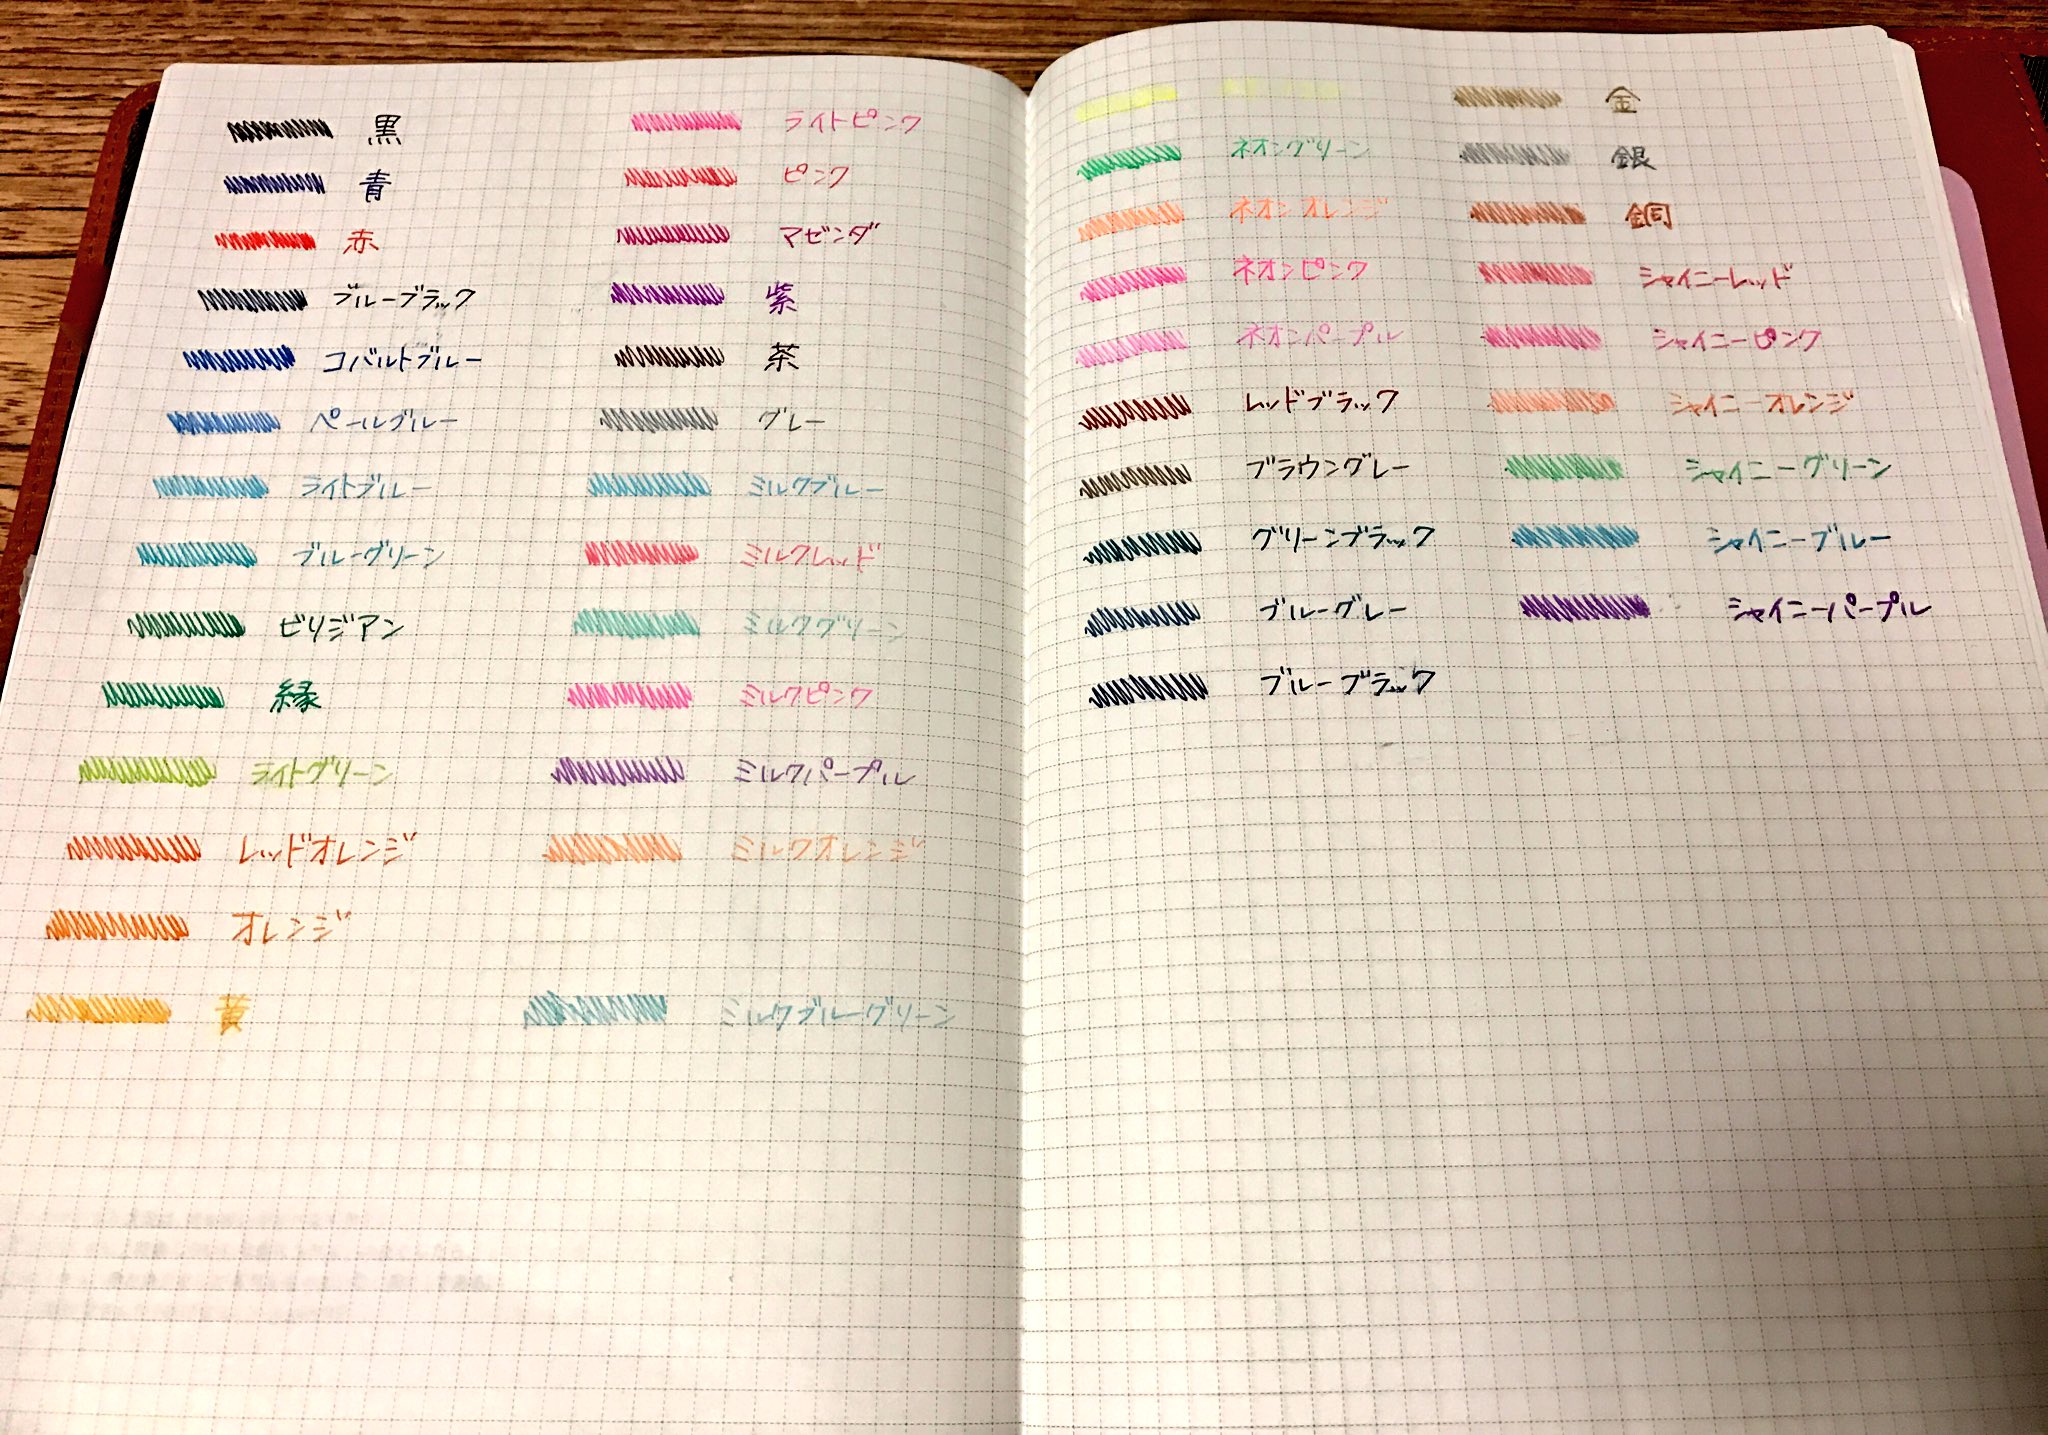 黒
青
赤
ブルーブラック
コバルトブルー
ペールブルー
ライトブルー
ブルーグリーン
ビリジアン
緑
ライトグリーン
レッドオレンジ
オレンジ
黄
ライトピンク
ピンク
マゼンダ
紫
茶
グレー
ミルクブルー
ミルクレッド
ミルクグリーン
ミルクピンク
ミルクパープル
ミルクオレンジ
ミルクブルーグリーン
ネオングリーン
ネオンオレンジ
ネオンピンク
ネオンパープル
レッドブラック
ブラウングレー
グリーンブラック
ブルーグレー
ブルーブラック
金
銀
銅
シャイニーレッド
シャイニーピンク
シャイニーオレンジ
シャイニーグリーン
シャイニーブルー
シャイニーパープル